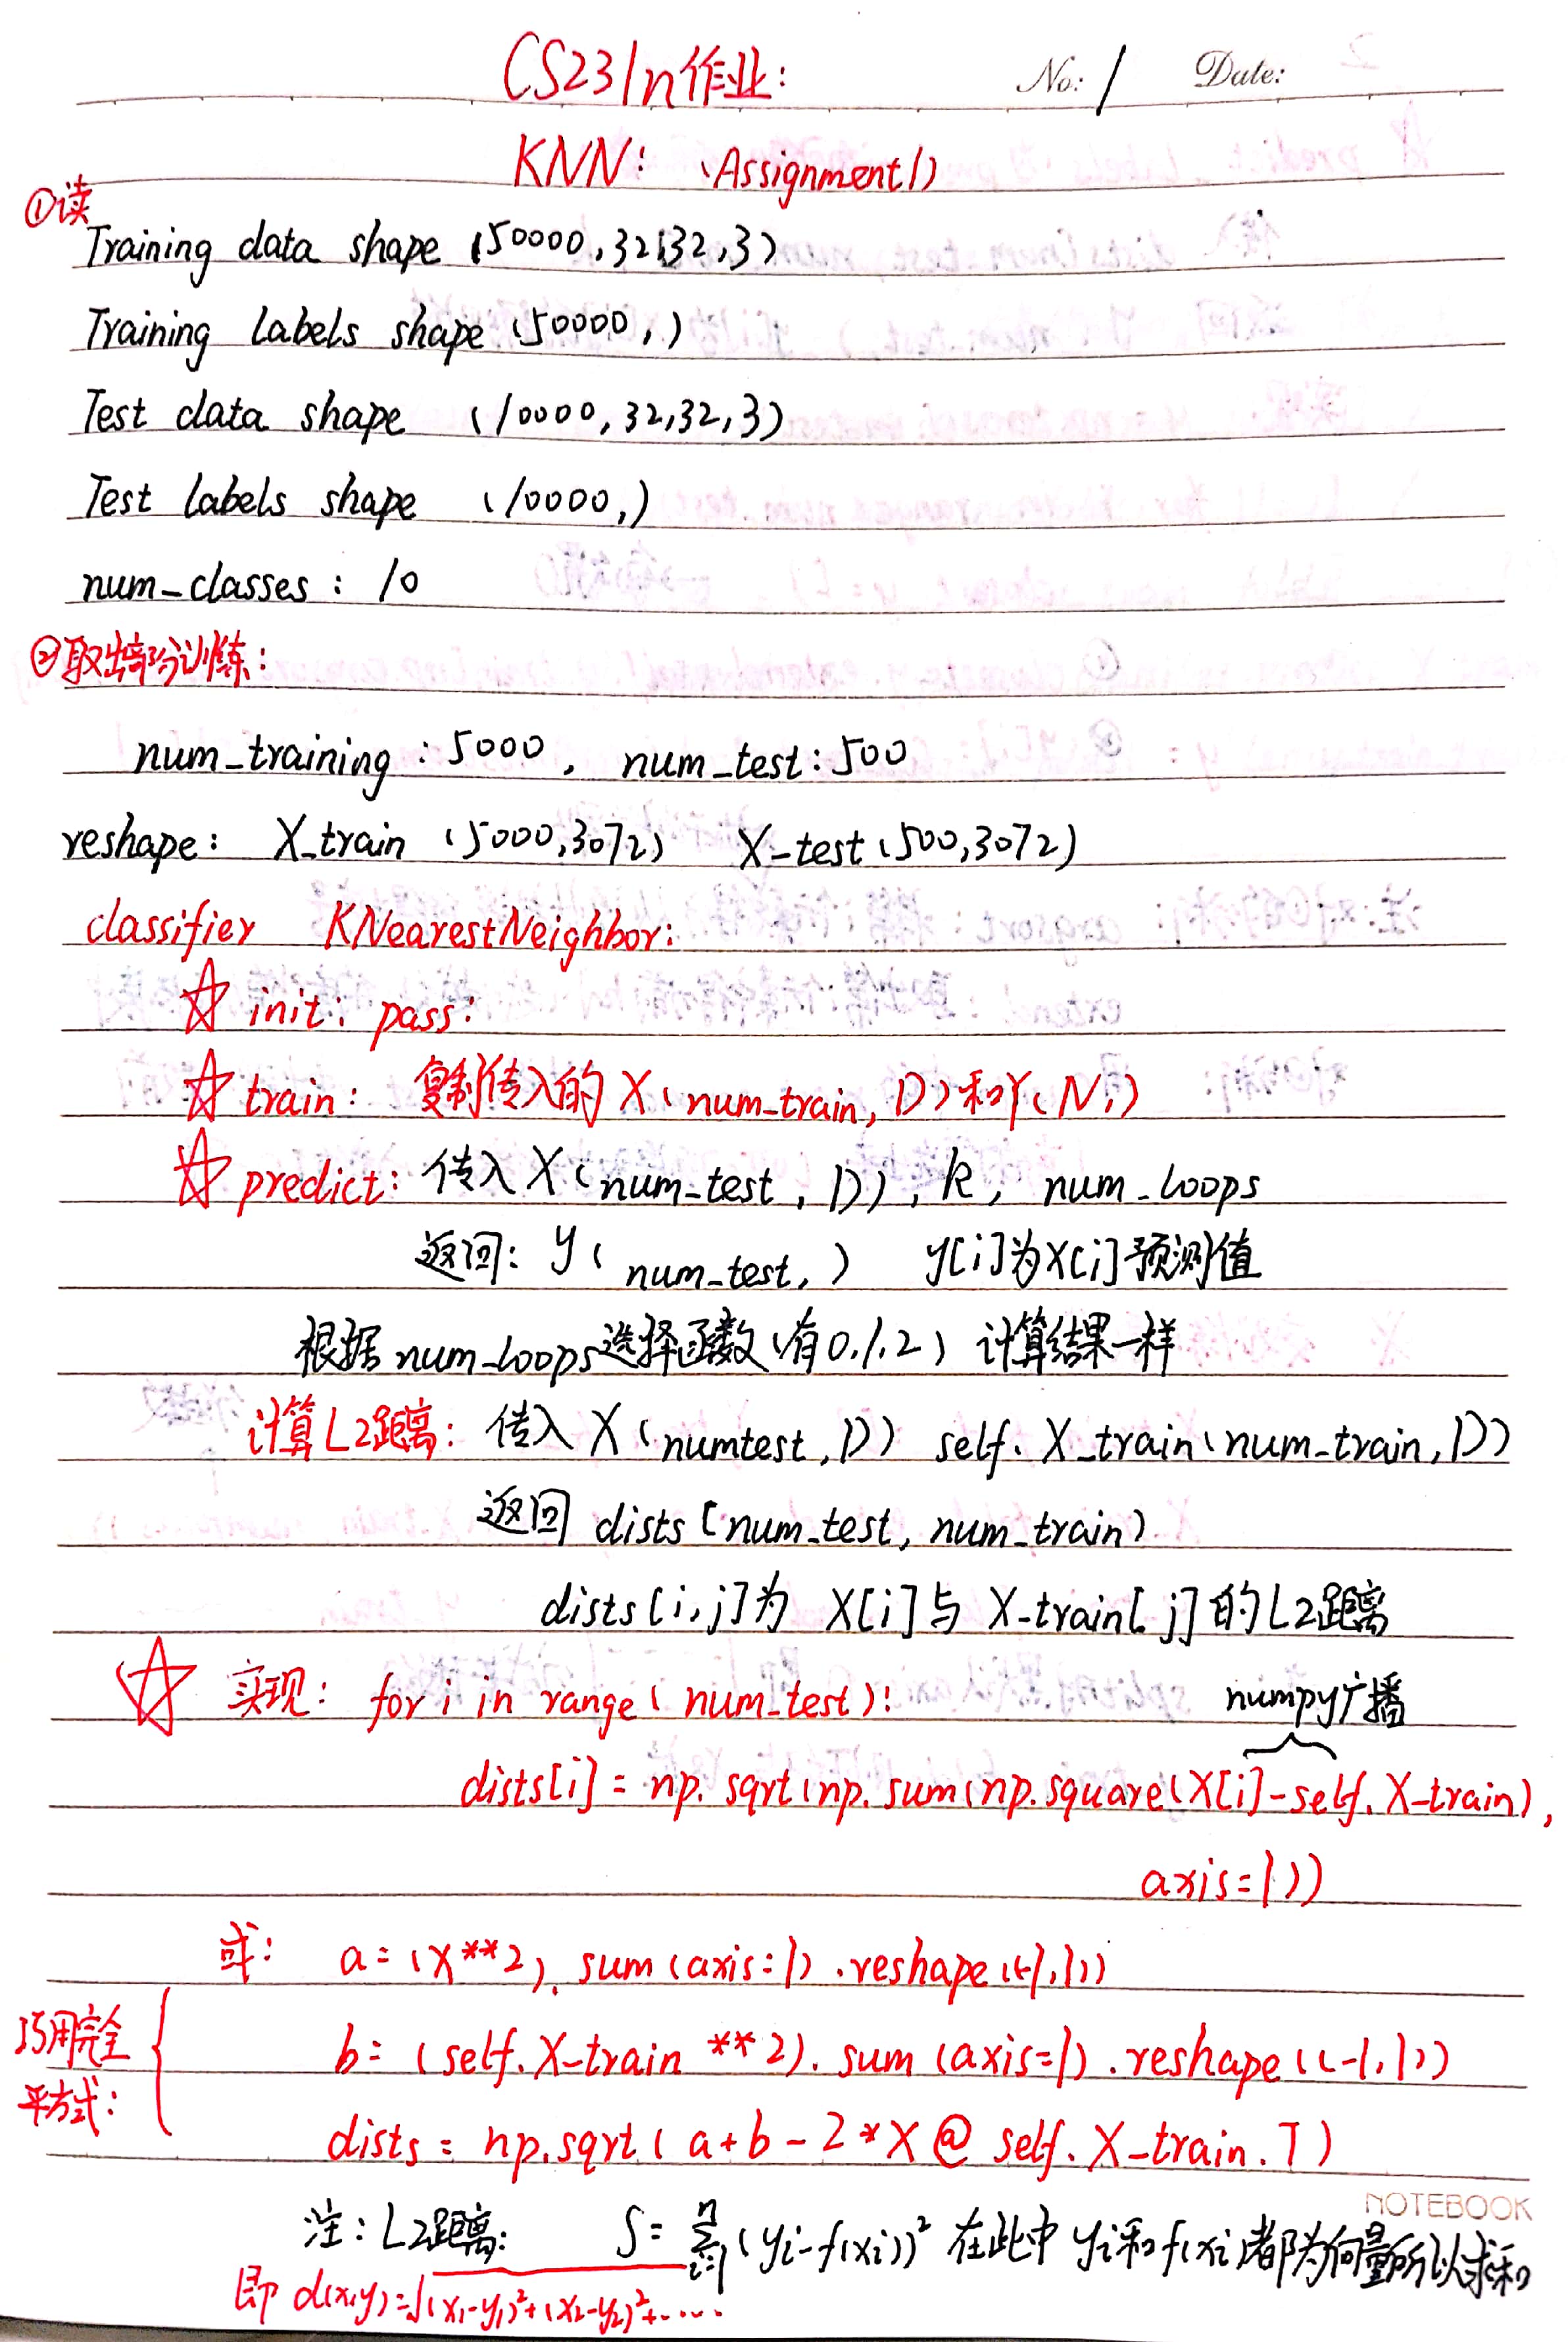 CS231n作业:
No: 1 Date:
KNN: (Assignment1)
①读
Training data shape (50000,32,32,3)
Training labels shape (50000,)
Test data shape (10000,32,32,3)
Test labels shape (10000,)
num_classes: 10
②取出部分训练:
num_training:5000, num_test:500
reshape: X_train (5000,3072) X_test(500,3072)
classifier KNearestNeighbor:
☆ init: pass:
☆ train: 复制传入的X(num_train, D)和Y(N,)
☆ predict: 传入X(num_test, D), k, num_loops
返回: y(num_test,) y[i]为X[i]预测值
根据num_loops选择函数(有0.1.2) 计算结果一样
计算L2距离: 传入X(numtest, D) self.X_train(num_train, D)
返回 dists [num_test, num_train)
dists[i,j]为 X[i]与 X_train[j]的L2距离
☆ 实现: for i in range(num_test):
numpy广播
dists[i] = np.sqrt(np.sum(np.square(X[i]-self.X_train),
axis=1))
或: a=(X**2).sum(axis=1).reshape((-1,1))
巧用完全
平方式:
b= (self.X_train **2).sum(axis=1).reshape((-1,1))
dists = np.sqrt(a+b-2*X@ self.X_train.T)
NOTEBOOK
注: L2距离: S=∑ⁿᵢ₌₁(yi-f(xi))² 在此中yi和f(xi)都为向量所以求和
即 d(x,y)=√(x₁-y₁)²+(x₂-y₂)²+.....